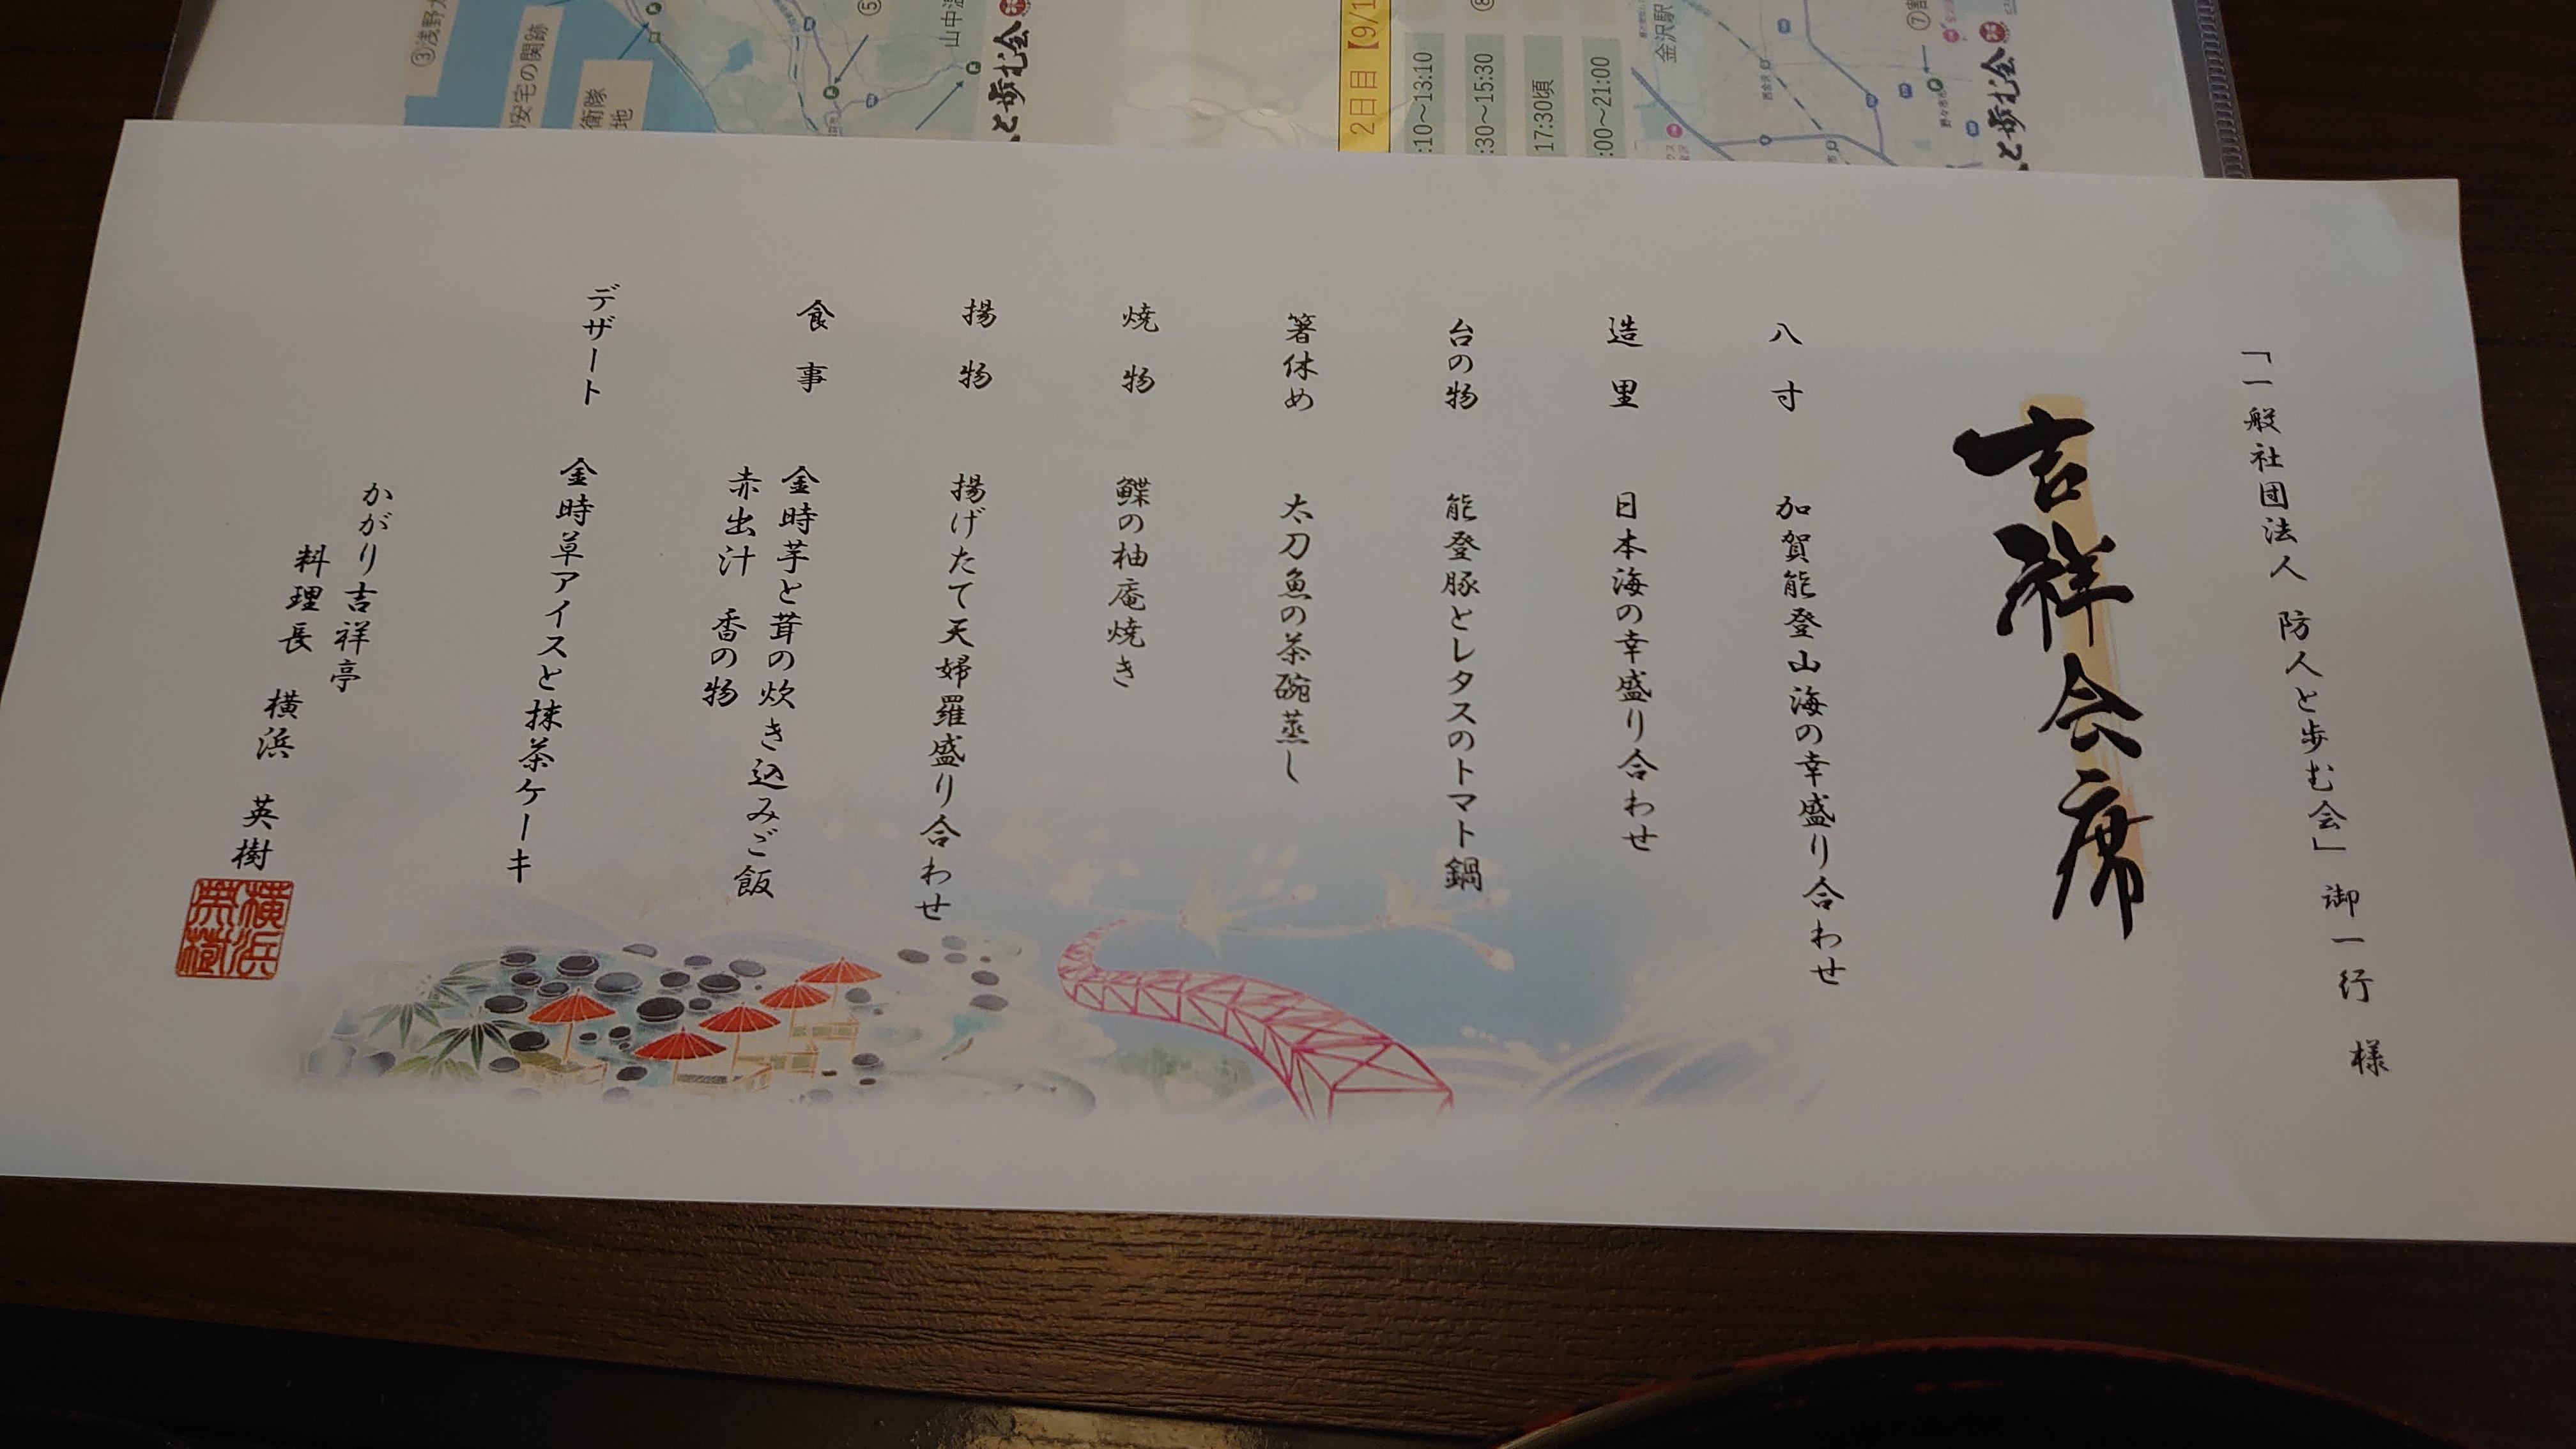 「一般社団法人 防人と歩む会」御一行 様
吉祥会席
八寸 加賀能登山海の幸盛り合わせ
造里 日本海の幸盛り合わせ
台の物 能登豚とレタスのトマト鍋
箸休め 太刀魚の茶碗蒸し
焼物 鰈の柚庵焼き
揚物 揚げたて天婦羅盛り合わせ
食事 金時芋と茸の炊き込みご飯
赤出汁 香の物
デザート 金時草アイスと抹茶ケーキ
かがり吉祥亭
料理長 横浜 英樹
横浜英樹
③浅野
安宅の関跡
衛隊
地
⑤
山中温
と歩む会
2日目【9/1
:10～13:10
:30～15:30
17:30頃
:00～21:00
⑧
金沢駅
⑦
と歩む会